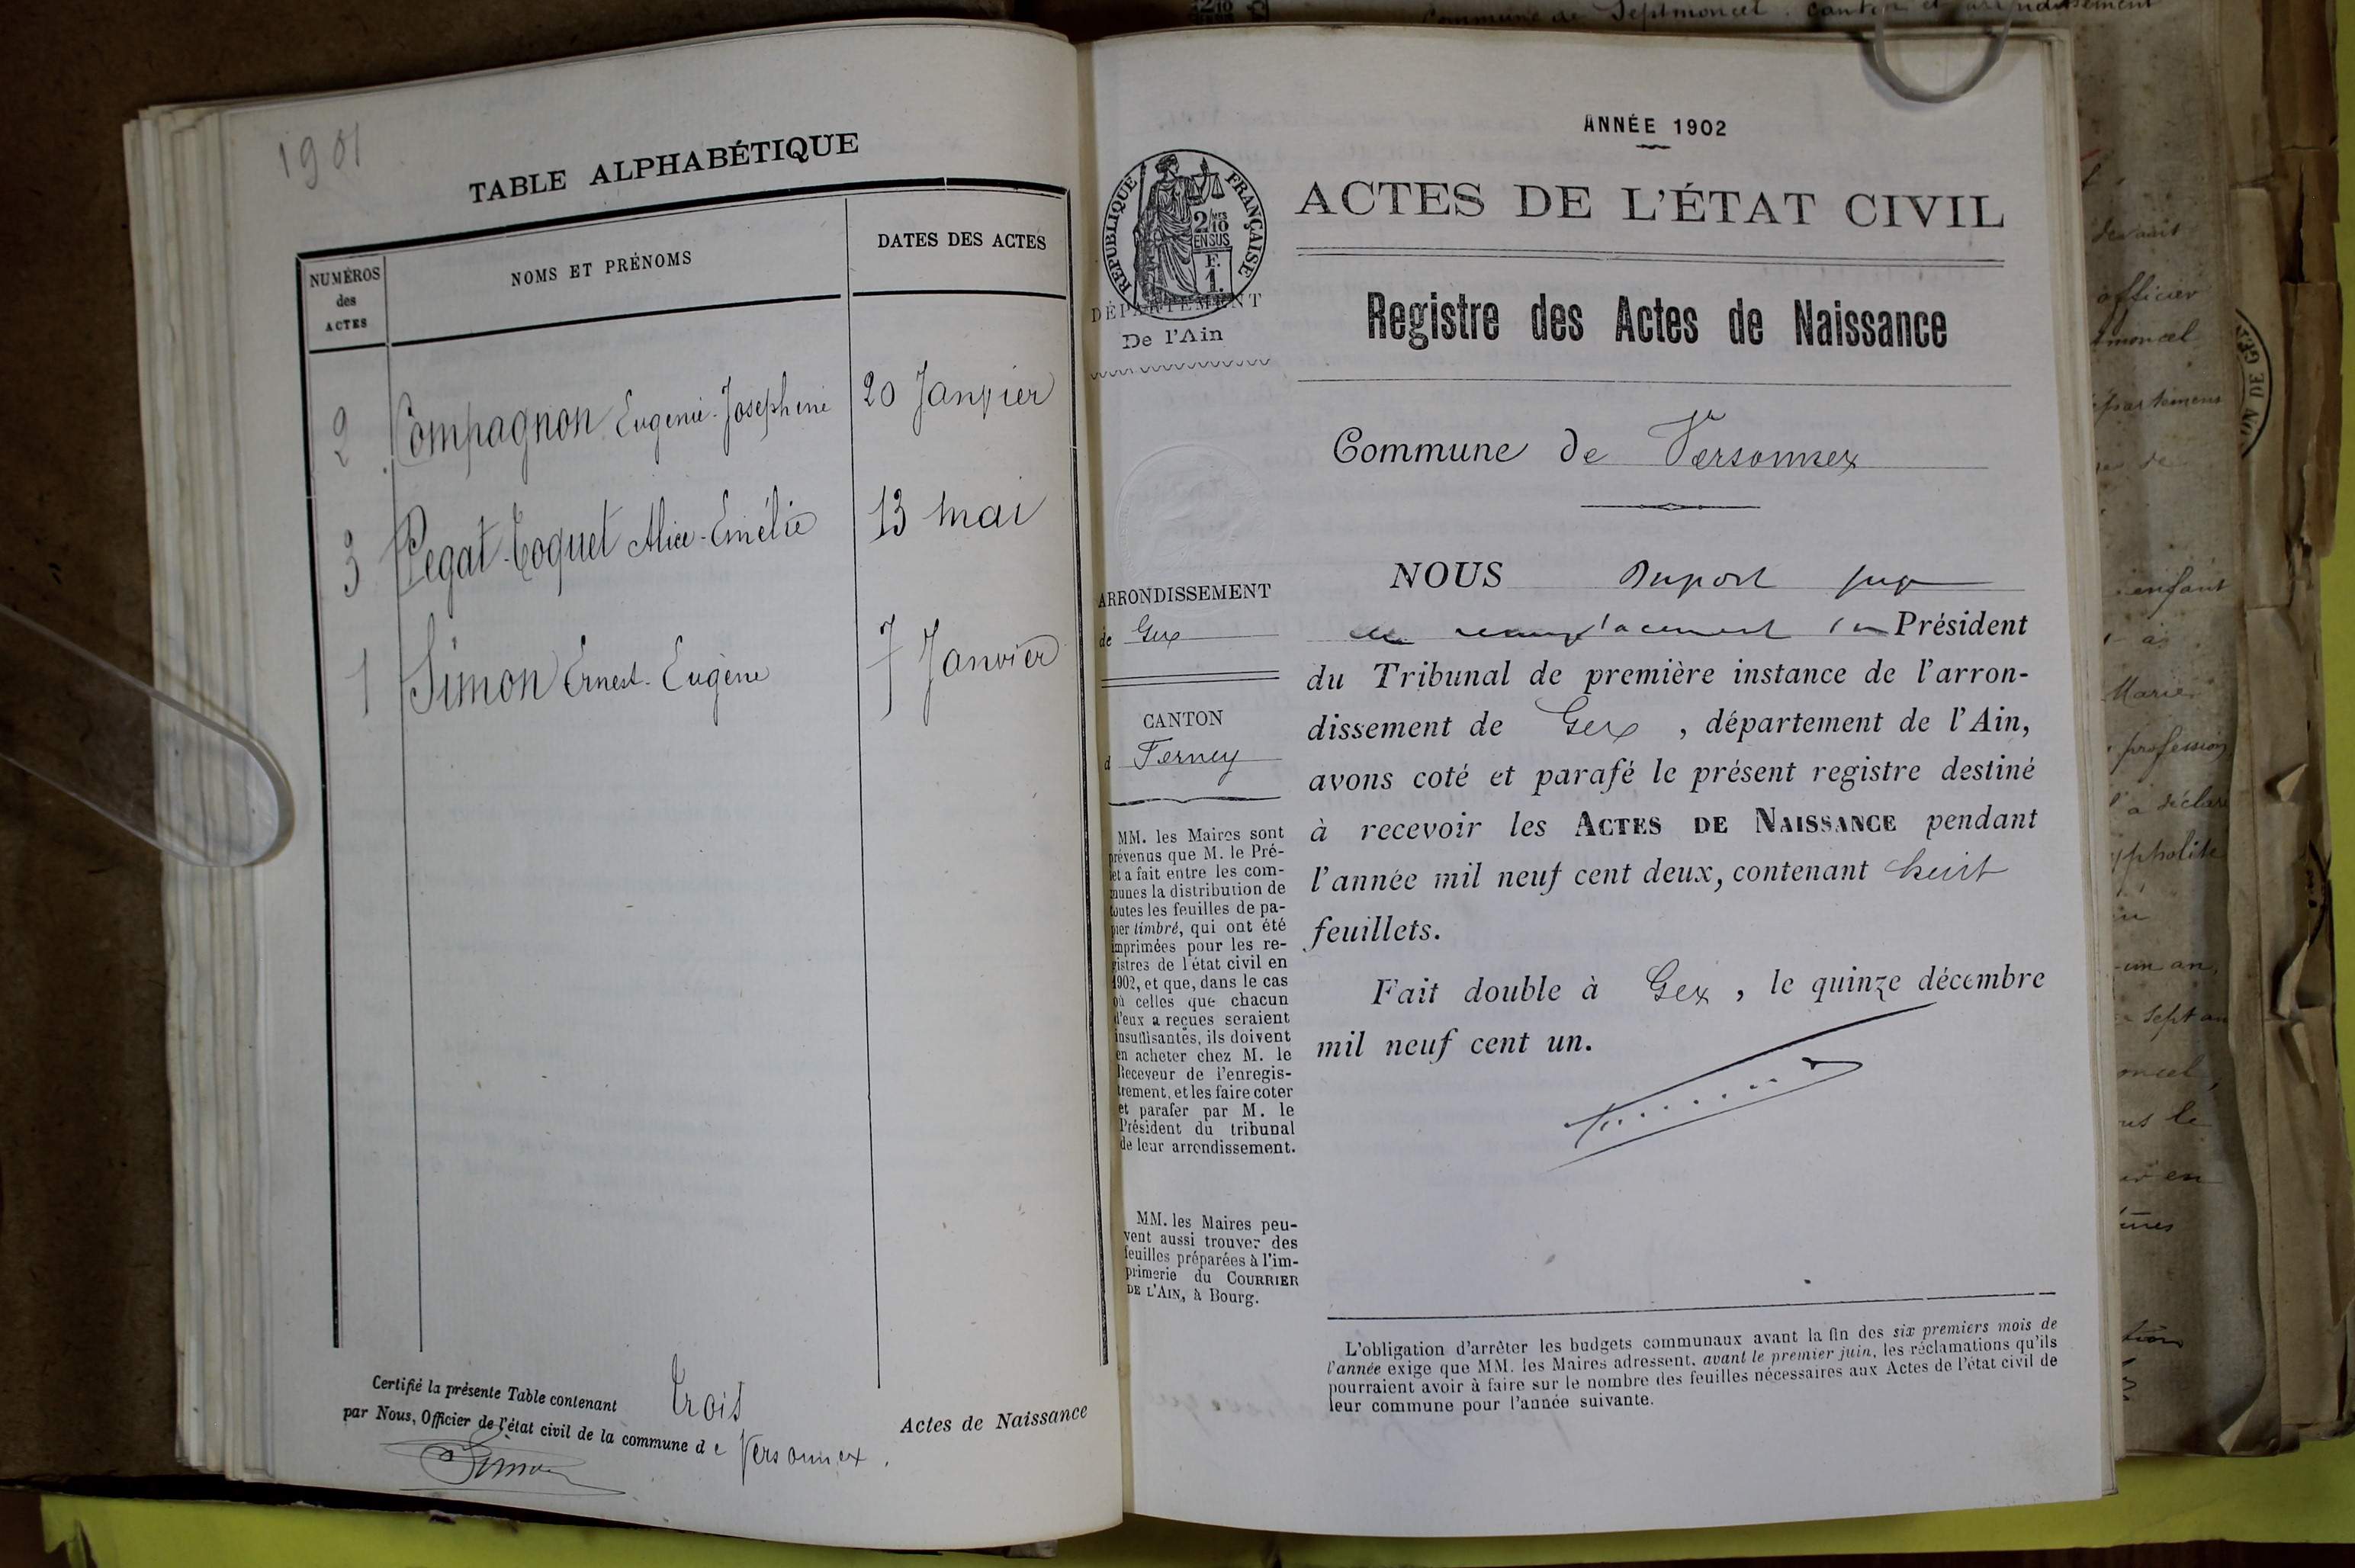 1901
TABLE ALPHABÉTIQUE
NUMÉROS
des
ACTES
NOMS ET PRÉNOMS
DATES DES ACTES
2 Compagnon Eugénie-Joséphine 20 Janvier
3 Pegat-Toquet Alice-Emélie 13 mai
1 Simon Ernest-Eugène 7 Janvier
Certifié la présente Table contenant trois Actes de Naissance
par Nous, Officier de l'état civil de la commune de Versonnex.
Simon
ANNÉE 1902
ACTES DE L'ÉTAT CIVIL
RÉPUBLIQUE FRANÇAISE
2/10 MES
EN SUS
F.
1.
DÉPARTEMENT
De l'Ain
Registre des Actes de Naissance
Commune de Versonnex
ARRONDISSEMENT
de Gex
CANTON
d Ferney
MM. les Maires sont
prévenus que M. le Pré-
fet a fait entre les com-
munes la distribution de
toutes les feuilles de pa-
pier timbré, qui ont été
imprimées pour les re-
gistres de l'état civil en
1902, et que, dans le cas
où celles que chacun
d'eux a reçues seraient
insuffisantes, ils doivent
en acheter chez M. le
Receveur de l'enregis-
trement, et les faire coter
et parafer par M. le
Président du tribunal
de leur arrondissement.
MM. les Maires peu-
vent aussi trouver des
feuilles préparées à l'im-
primerie du COURRIER
DE L'AIN, à Bourg.
NOUS Duport juge
en remplacement du Président
du Tribunal de première instance de l'arron-
dissement de Gex, département de l'Ain,
avons coté et parafé le présent registre destiné
à recevoir les ACTES DE NAISSANCE pendant
l'année mil neuf cent deux, contenant huit
feuillets.
Fait double à Gex, le quinze décembre
mil neuf cent un.
L'obligation d'arrêter les budgets communaux avant la fin des six premiers mois de
l'année exige que MM. les Maires adressent, avant le premier juin, les réclamations qu'ils
pourraient avoir à faire sur le nombre des feuilles nécessaires aux Actes de l'état civil de
leur commune pour l'année suivante.
Commune de Septmoncel. canton et arrondissement
devant
officier
enfant
Marie
profession
a déclaré
un an,
sept an